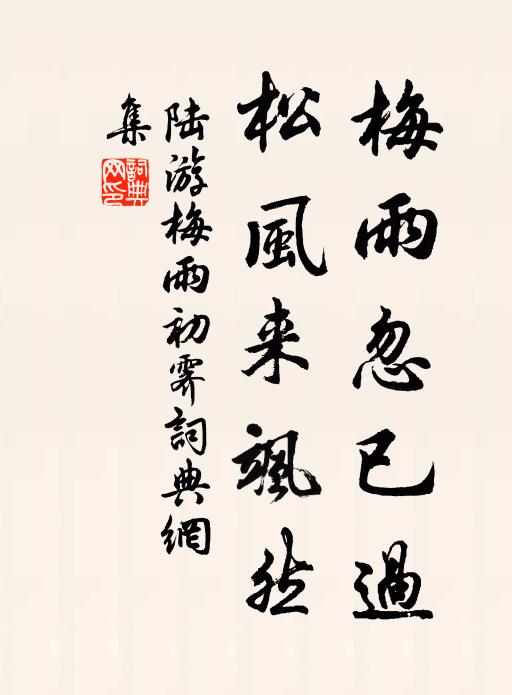 梅雨忽已過
松風来颯然
陆游梅雨初霽詞典網
集
詞典
网印